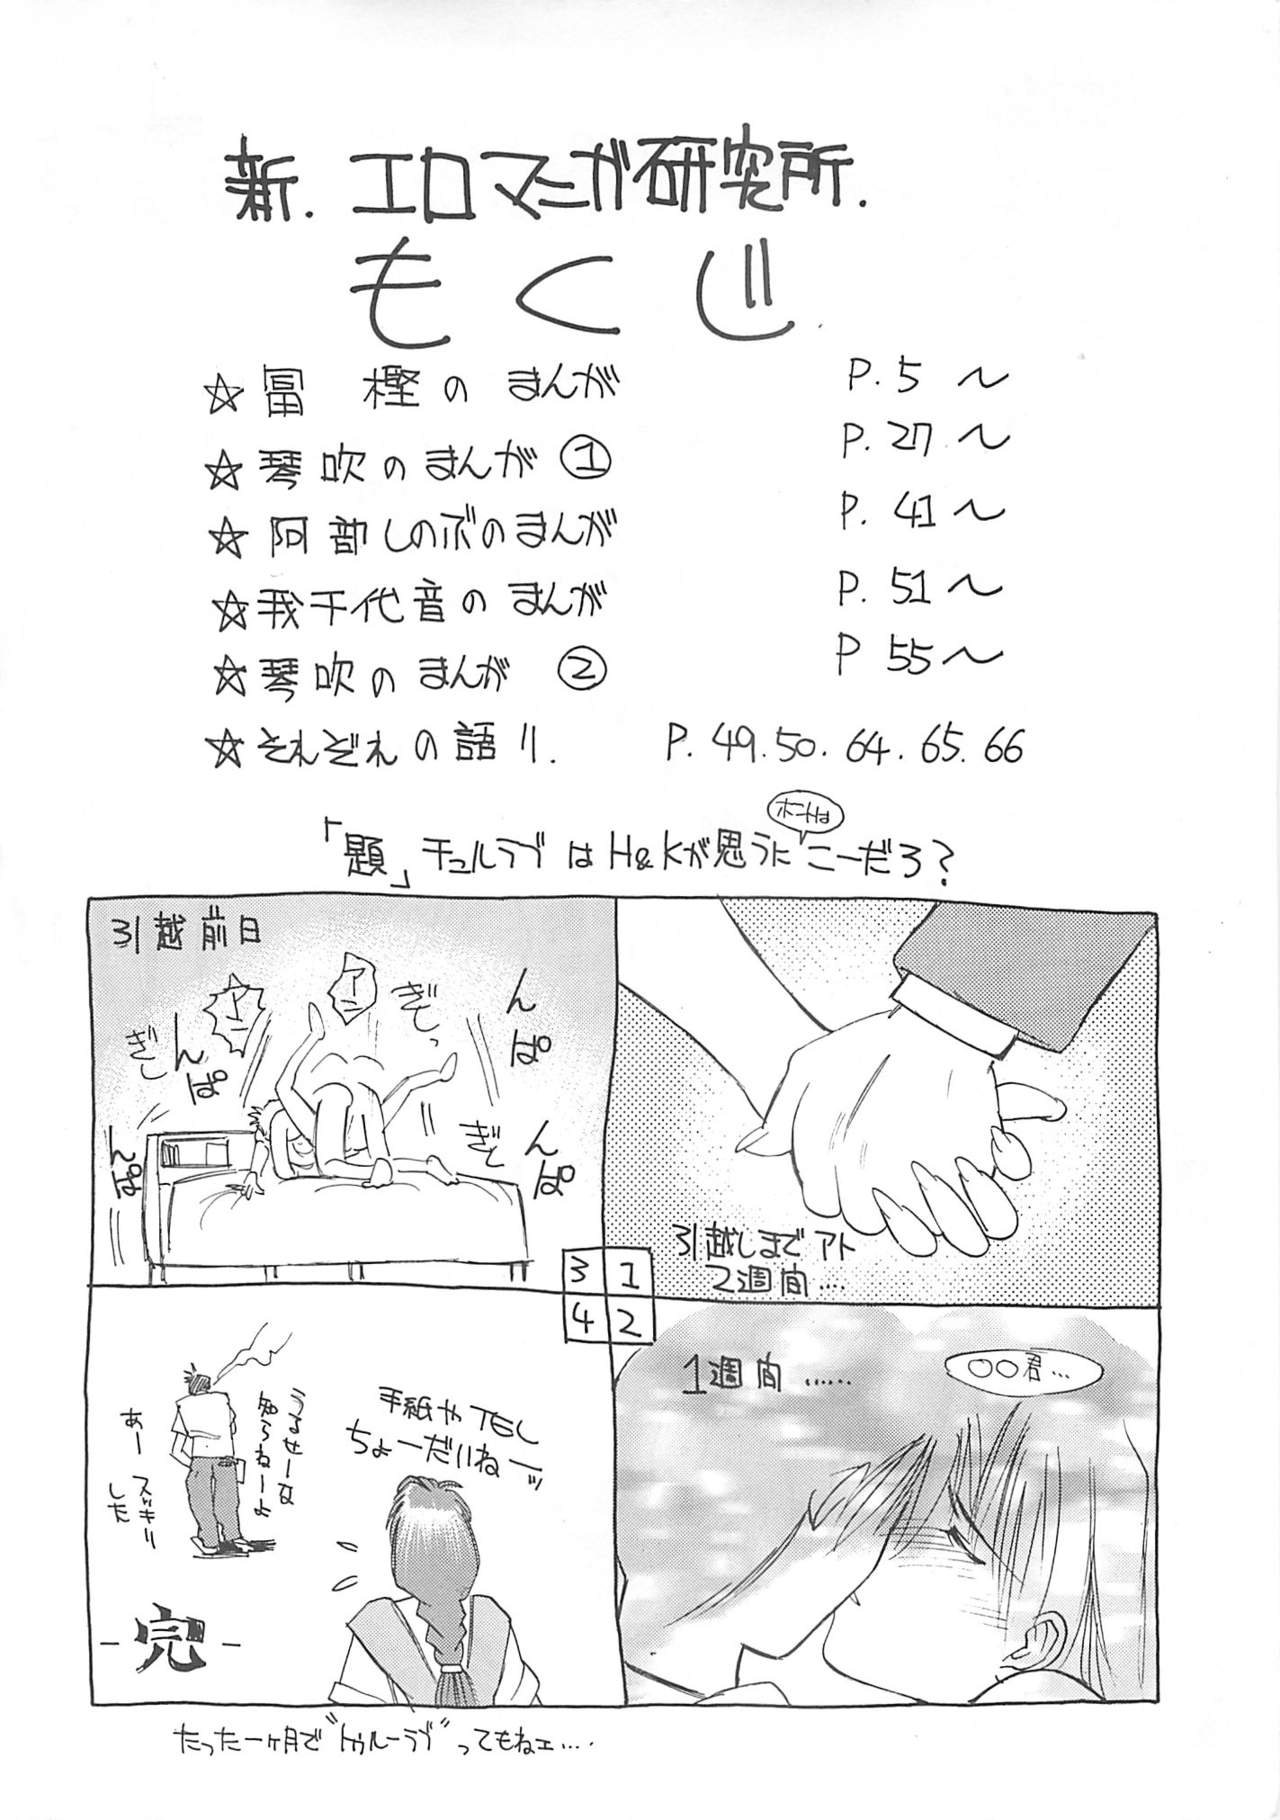 新.エロマニガ研究所.
もくじ
☆冨樫のまんが P.5～
☆琴吹のまんが① P.27～
☆阿部しのぶのまんが P.41～
☆我千代音のまんが P.51～
☆琴吹のまんが② P55～
☆それぞれの語り. P.49.50.64.65.66
ホントは
「題」チュルラブはH&Kが思うにこーだろ?
引越しまでアト
2週間....
1
2
3
4
1週間......
○○君...
引越前日
アン
アン
ぎしっ
ぎし
ぎし
んぱ
んぱ
んぱ
んぱ
手紙やTEL
ちょーだいねーッ
うるせーな
知らねーよ
あースッキリ
した
-完-
たった一ヶ月で"トゥルーラブ"ってもねェ....